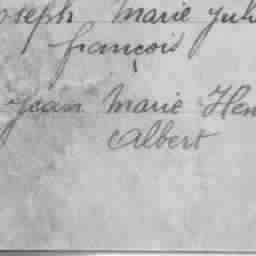 oseph Marie Juli
françois
Jean Marie Hen
Albert